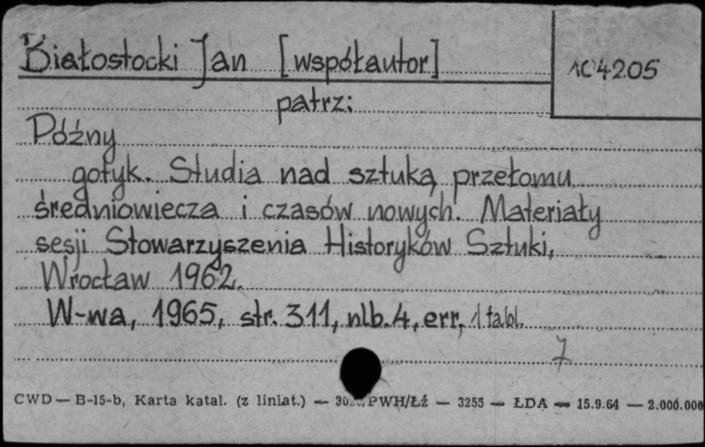 Białostocki Jan [współautor]
104205
patrz:
Późny
gotyk. Studia nad sztuką przełomu
średniowiecza i czasów nowych. Materiały
sesji Stowarzyszenia Historyków Sztuki,
Wrocław 1962.
W-wa, 1965, str. 311, nlb. 4, err, 1 tabl.
7
CWD — B-15-b, Karta katal. (z liniat.) — PWH/Łź — 3255 — ŁDA — 15.9.64 — 2.000.000